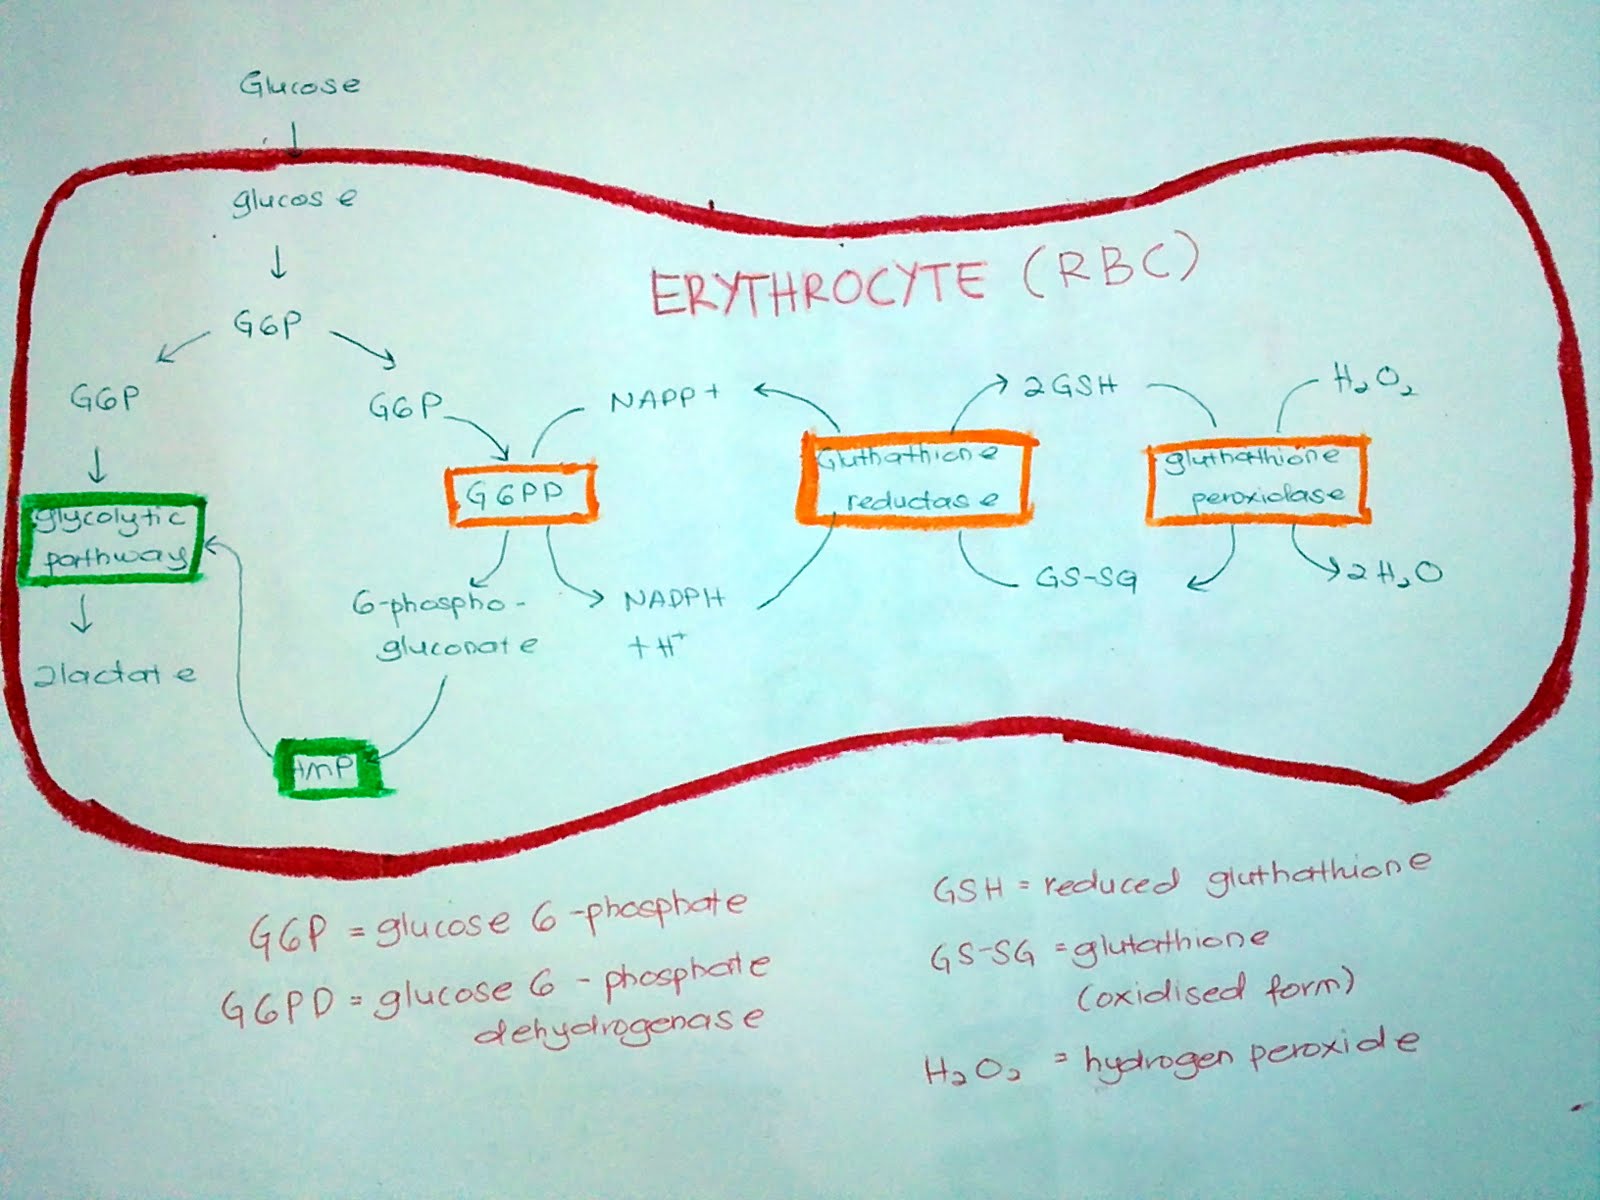 Glucose
glucose
ERYTHROCYTE (RBC)
G6P
G6P
G6P
NAPP+
2GSH
H2O2
glycolytic
pathway
G6PD
Gluthathione
reductase
gluthathione
peroxidase
2lactate
6-phospho-
gluconate
NADPH
+ H+
GS-SG
2H2O
HMP
G6P = glucose 6-phosphate
G6PD = glucose 6 - phosphate
dehydrogenase
GSH = reduced gluthathione
GS-SG = glutathione
(oxidised form)
H2O2 = hydrogen peroxide